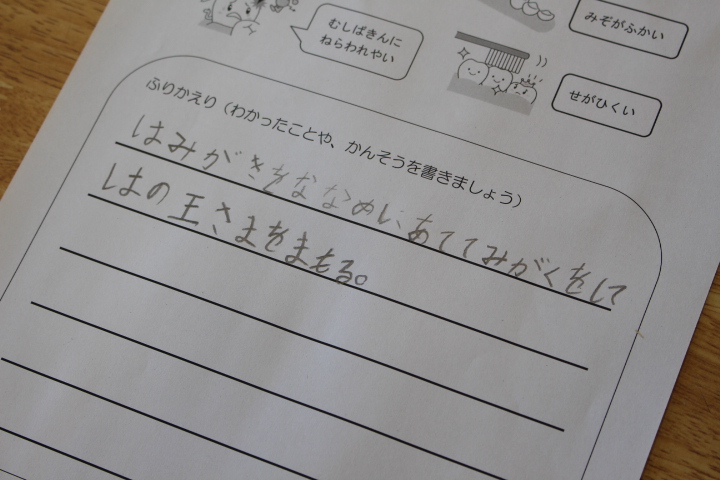 みぞがふかい
むしばきんに
ねらわれやすい
せがひくい
ふりかえり（わかったことや、かんそうを書きましょう）
はみがきをななめにあててみがくをして
はの王さまをまもる。